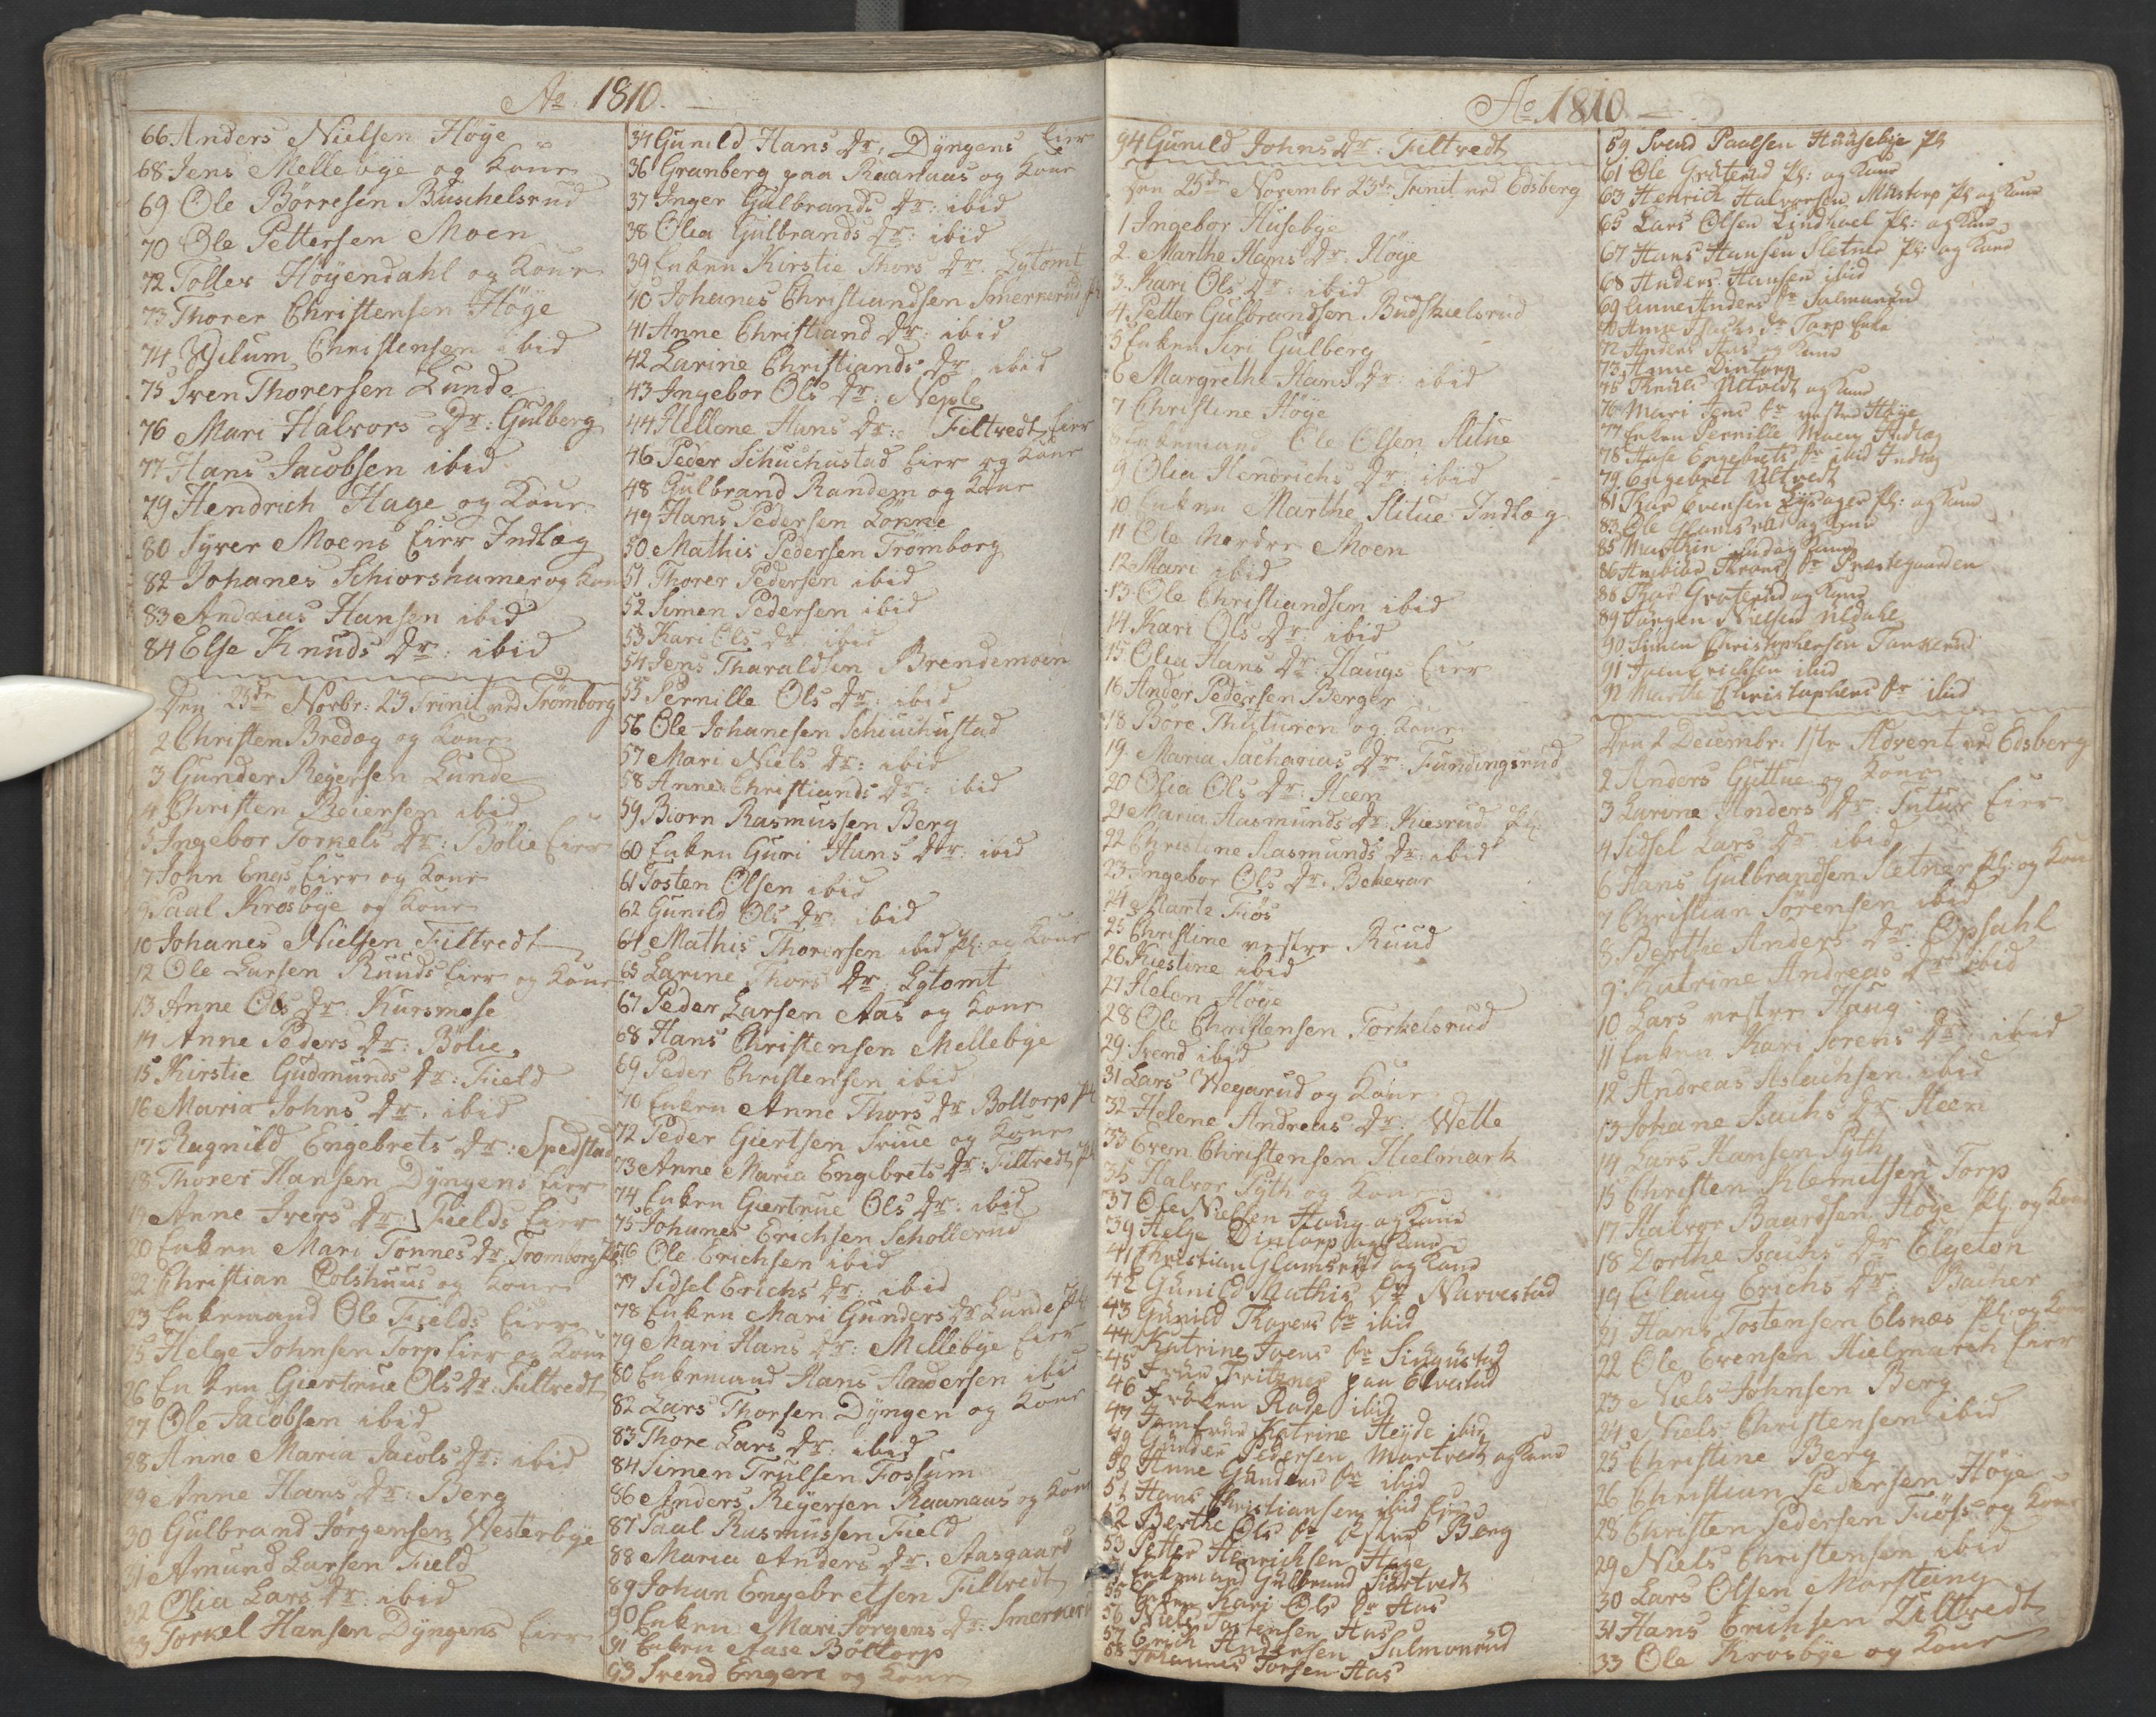 Ao 1810.
66 Anders Nielsen Höye
68 Jens Mellebye og Kone
69 Ole Börresen Buschelsrud
70 Ole Pettersen Moen
72 Tolles Höyendahl og Kone
73 Thorer Christensen Höye
74 Christensen ibid
75 Iven Thorersen Lunde
76 Mari Halvors Dr: Gulberg
77 Hans Jacobsen ibid
79 Hendrich Hage og Kone
80 Syver Moens Eier Indlæg
82 Johanes Schiorshamer og Kone
83 Andreas Hansen ibid
84 Else Knuds Dr: ibid
Den 25de Novbr: 23 Trinit ved Trömborg
2 Christen Bredæg og Kone
3 Gunder Reyersen Lunde
4 Christen Reiersen ibid
5 Ingebor Torkels Dr: Bölie Eier
7 John Engs Eier og Kone
9 Paal Krosbye og Kone
10 Johanes Nielsen Filtvedt
12 Ole Larsen Ruuds Eier og Kone
13 Anne Ols Dr: Kursmose
14 Anne Peders Dr: Bölie
15 Kirstie Gudmunds Dr: Field
16 Maria Johns Dr: ibid
17 Ragnild Engebrets Dr: Spedstad
18 Thorer Hansen Dyngens Eier
19 Anne Ivers Dr Fields Eier
20 Enken Mari Tonnes Dr Tromborg Pl
22 Christian Colshuus og Kone
23 Enkemand Ole Fields Eier
25 Helge Johnsen Torp Eier og Kone
26 Enken Giertrue Ols Dr: Filtvedt
27 Ole Jacobsen ibid
28 Anne Maria Jacobs Dr: ibid
29 Anne Hans Dr: Berg
30 Gulbrand Jörgensen Westerbye
31 Amund Larsen Field
32 Olia Lars Dr: ibid
33 Torkel Hansen Dyngens Eier
34 Gunild Hans Dr: Dyngens Eier
36 Granberg paa Raanaas og Kone
37 Inger Gulbrands Dr: ibid
38 Olea Gulbrands Dr: ibid
39 Enken Kirstie Thors Dr: Lytomt
40 Johanes Christiandsen Smerkerud Pl
41 Anne Christiand Dr: ibid
42 Larine Christiands Dr: ibid
43 Ingebor Ols Dr: Neple
44 Hellene Hans Dr: Filtvedt Eier
46 Peder Schuchustad Eier og Kone
48 Gulbrand Randem og Kone
49 Hans Pedersen Lönne
50 Mathis Pedersen Trömborg
51 Thorer Pedersen ibid
52 Simen Pedersen ibid
53 Kari Ols Dr ibid
54 Jens Tharaldsen Brendemoen
55 Pernille Ols Dr: ibid
56 Ole Johanesen Schuchustad
57 Mari Niels Dr: ibid
58 Anne Christiands Dr: ibid
59 Biorn Rasmussen Berg
60 Enken Guri Hans Dr: ibid
61 Tosten Olsen ibid
62 Gunild Ols Dr: ibid
64 Mathis Thorersen ibid Pl: og Kone
65 Larine Thors Dr: Lytomt
67 Peder Larsen Aas og Kone
68 Hans Christensen Mellebye
69 Peder Christensen ibid
70 Enken Anne Thors Dr Boltorp Pl
72 Peder Giertsen Friue og Kone
73 Anne Maria Engebrets Dr: Filtvedt Pl
74 Enken Giertrue Ols Dr: ibid
75 Johanes Erichsen Schollerud
76 Ole Erichsen ibid
77 Sidsel Erichs Dr: ibid
78 Enken Mari Gunders Dr Lunde Pl
79 Mari Hans Dr: Mellebye Eier
80 Enkemand Hans Andersen ibid
82 Lars Thorsen Dyngen og Kone
83 Thore Lars Dr: ibid
84 Simen Trulsen Fossum
86 Anders Reyersen Raanaas og Kone
87 Paal Rasmussen Field
88 Maria Anders Dr: Aasgaard
89 Johan Engebretsen Filtvedt
90 Enken Mari Jörgens Dr: Smerkerud
91 Enken Aase Böltorp
93 Svend Engen og Kone
Ao 1810
94 Gunild Johns Dr: Filtvedt
Den 25de Novembr 23de Trinit ved Edsberg
1 Ingebor Husebye
2 Marthe Hans Dr: Höye
3 Kari Ols Dr: ibid
4 Petter Gulbrandsen Budskielsrud
5 Enken Siri Gulberg
6 Margrethe Hans Dr: ibid
7 Christine Höye
8 Enkemand Ole Olsen Slitue
9 Olia Hendrichs Dr: ibid
10 Enken Marthe Slitue Indlæg
11 Ole Nordre Moen
12 Mari ibid
13 Ole Christiandsen ibid
14 Kari Ols Dr: ibid
15 Olea Hans Dr: Haugs Eier
16 Ander Pedersen Berger
18 Böre Thuturen og Kone
19 Maria Sacharias Dr: Fundingsrud
20 Olia Ols Dr: Heen
21 Maria Aasmunds Dr: Kiesrud Pl
22 Christine Aasmunds Dr: ibid
23 Ingebor Ols Dr: Bekevar
24 Marte Fiös
25 Christine vestre Ruud
26 Kiestine ibid
27 Helen Höye
28 Ole Christensen Torkelsrud
29 Svend ibid
31 Lars Wegarud og Kone
32 Helene Andreas Dr: Welle
33 Even Christensen Hielmark
35 Halvor Syth og Kone
37 Ole Nielsen Haug og Kone
39 Helge Dintorp og Kone
41 Christian Glamsrud og Kone
42 Gunild Mathis Dr Narvestad
43 Gunild Thorers Dr ibid
44 Katrine Ivers Dr Sikkustad
45 Frue Fritzner paa Elvestad
46 Fröken Rode ibid
47 Jomfrue Katrine Heyde ibid
49 Gunder Pedersen Martvedt og Kone
50 Anne Gunders Dr ibid
51 Hans Christiansen ibid Eier
52 Berthe Ols Dr östre Berg
53 Petter Henrichsen Hage
54 Enkemand Gulbrand Fiortvedt
55 Enken Kari Ols Dr Aas
56 Niels Tostensen Aas
57 Erich Andersen Salmonrud
58 Johannes Torsen Aas
59 Svend Paalsen Huusebye Pl
61 Ole Groterud Pl: og Kone
63 Henrich Halvorsen Mustorp Pl og Kone
65 Lars Olsen Lindhoel Pl: og Kone
67 Hans Hansen Sletner Pl: og Kone
68 Anders Hansen ibid
69 Anne Anders Dr Salmonrud
70 Anne Isachs Dr Torp Enke
72 Anders Aas og Kone
73 Anne Dintorp
75 Ultvedt og Kone
76 Mari Jens Dr vestre Höye
77 Enken Pernille Moen Indlæg
78 Aase Engebrets Dr ibid Indlæg
79 Engebret Ultvedt
81 Thor Evensen Pl: og Kone
83 Ole Glamsrud og Kone
85 Marthin og Kone
86 Dr Præstegaarden
88 Thor Groterud og Kone
89 Jörgen Nielsen Nedahl
90 Simen Christophersen Tankerud
91 Iver Erichsen ibid
92 Marthe Christophers Dr ibid
Den 2 Decembr: 1ste Advent ved Edsberg
2 Anders Guttue og Kone
3 Larine Anders Dr: Tutur Eier
4 Sidsel Lars Dr ibid
6 Hans Gulbrandsen Sletner Pl: og Kone
7 Christian Sörensen ibid
8 Berthe Anders Dr: Opsahl
9 Katrine Andreas Dr ibid
10 Lars vestre Haug
11 Enken Kari Sorens Dr: ibid
12 Andreas Aslachsen ibid
13 Johane Isachs Dr Heen
14 Lars Hansen Syth
15 Christen Klemetsen Torp
17 Halvor Baardsen Höye Pl: og Kone
18 Dorthe Isachs Dr Elgeton
19 Olaug Erichs Dr: Bacher
21 Hans Tostensen Elsnæs Pl: og Kone
22 Ole Evensen Hielmarch Eier
23 Niels Johnsen Berg
24 Niels Christensen ibid
25 Christine Berg
26 Christian Pedersen Höye
28 Christen Pedersen Fiöss og Kone
29 Niels Christensen ibid
30 Lars Olsen Morstang
31 Hans Erichsen Ultvedt
33 Ole Krosbye og Kone